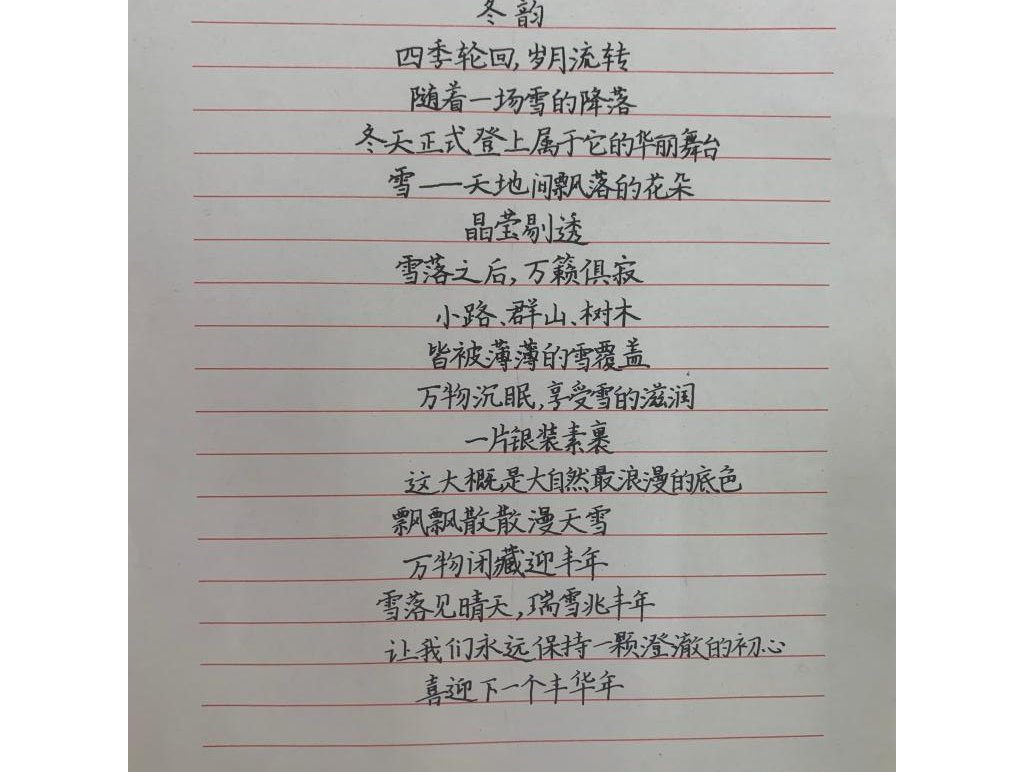 冬韵
四季轮回,岁月流转
随着一场雪的降落
冬天正式登上属于它的华丽舞台
雪——天地间飘落的花朵
晶莹剔透
雪落之后,万籁俱寂
小路、群山、树木
皆被薄薄的雪覆盖
万物沉眠,享受雪的滋润
一片银装素裹
这大概是大自然最浪漫的底色
飘飘散散漫天雪
万物闭藏迎丰年
雪落见晴天,瑞雪兆丰年
让我们永远保持一颗澄澈的初心
喜迎下一个丰华年